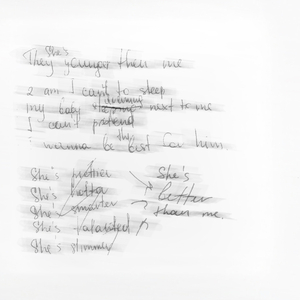 She's
They younger then me
2 am I can't to sleep
my baby dreaming next to me
I can't pretend
the
wanna be best for him
She's hotter
She's
She's smarter
She's talanted
She's slimmer
She's
better
than me.